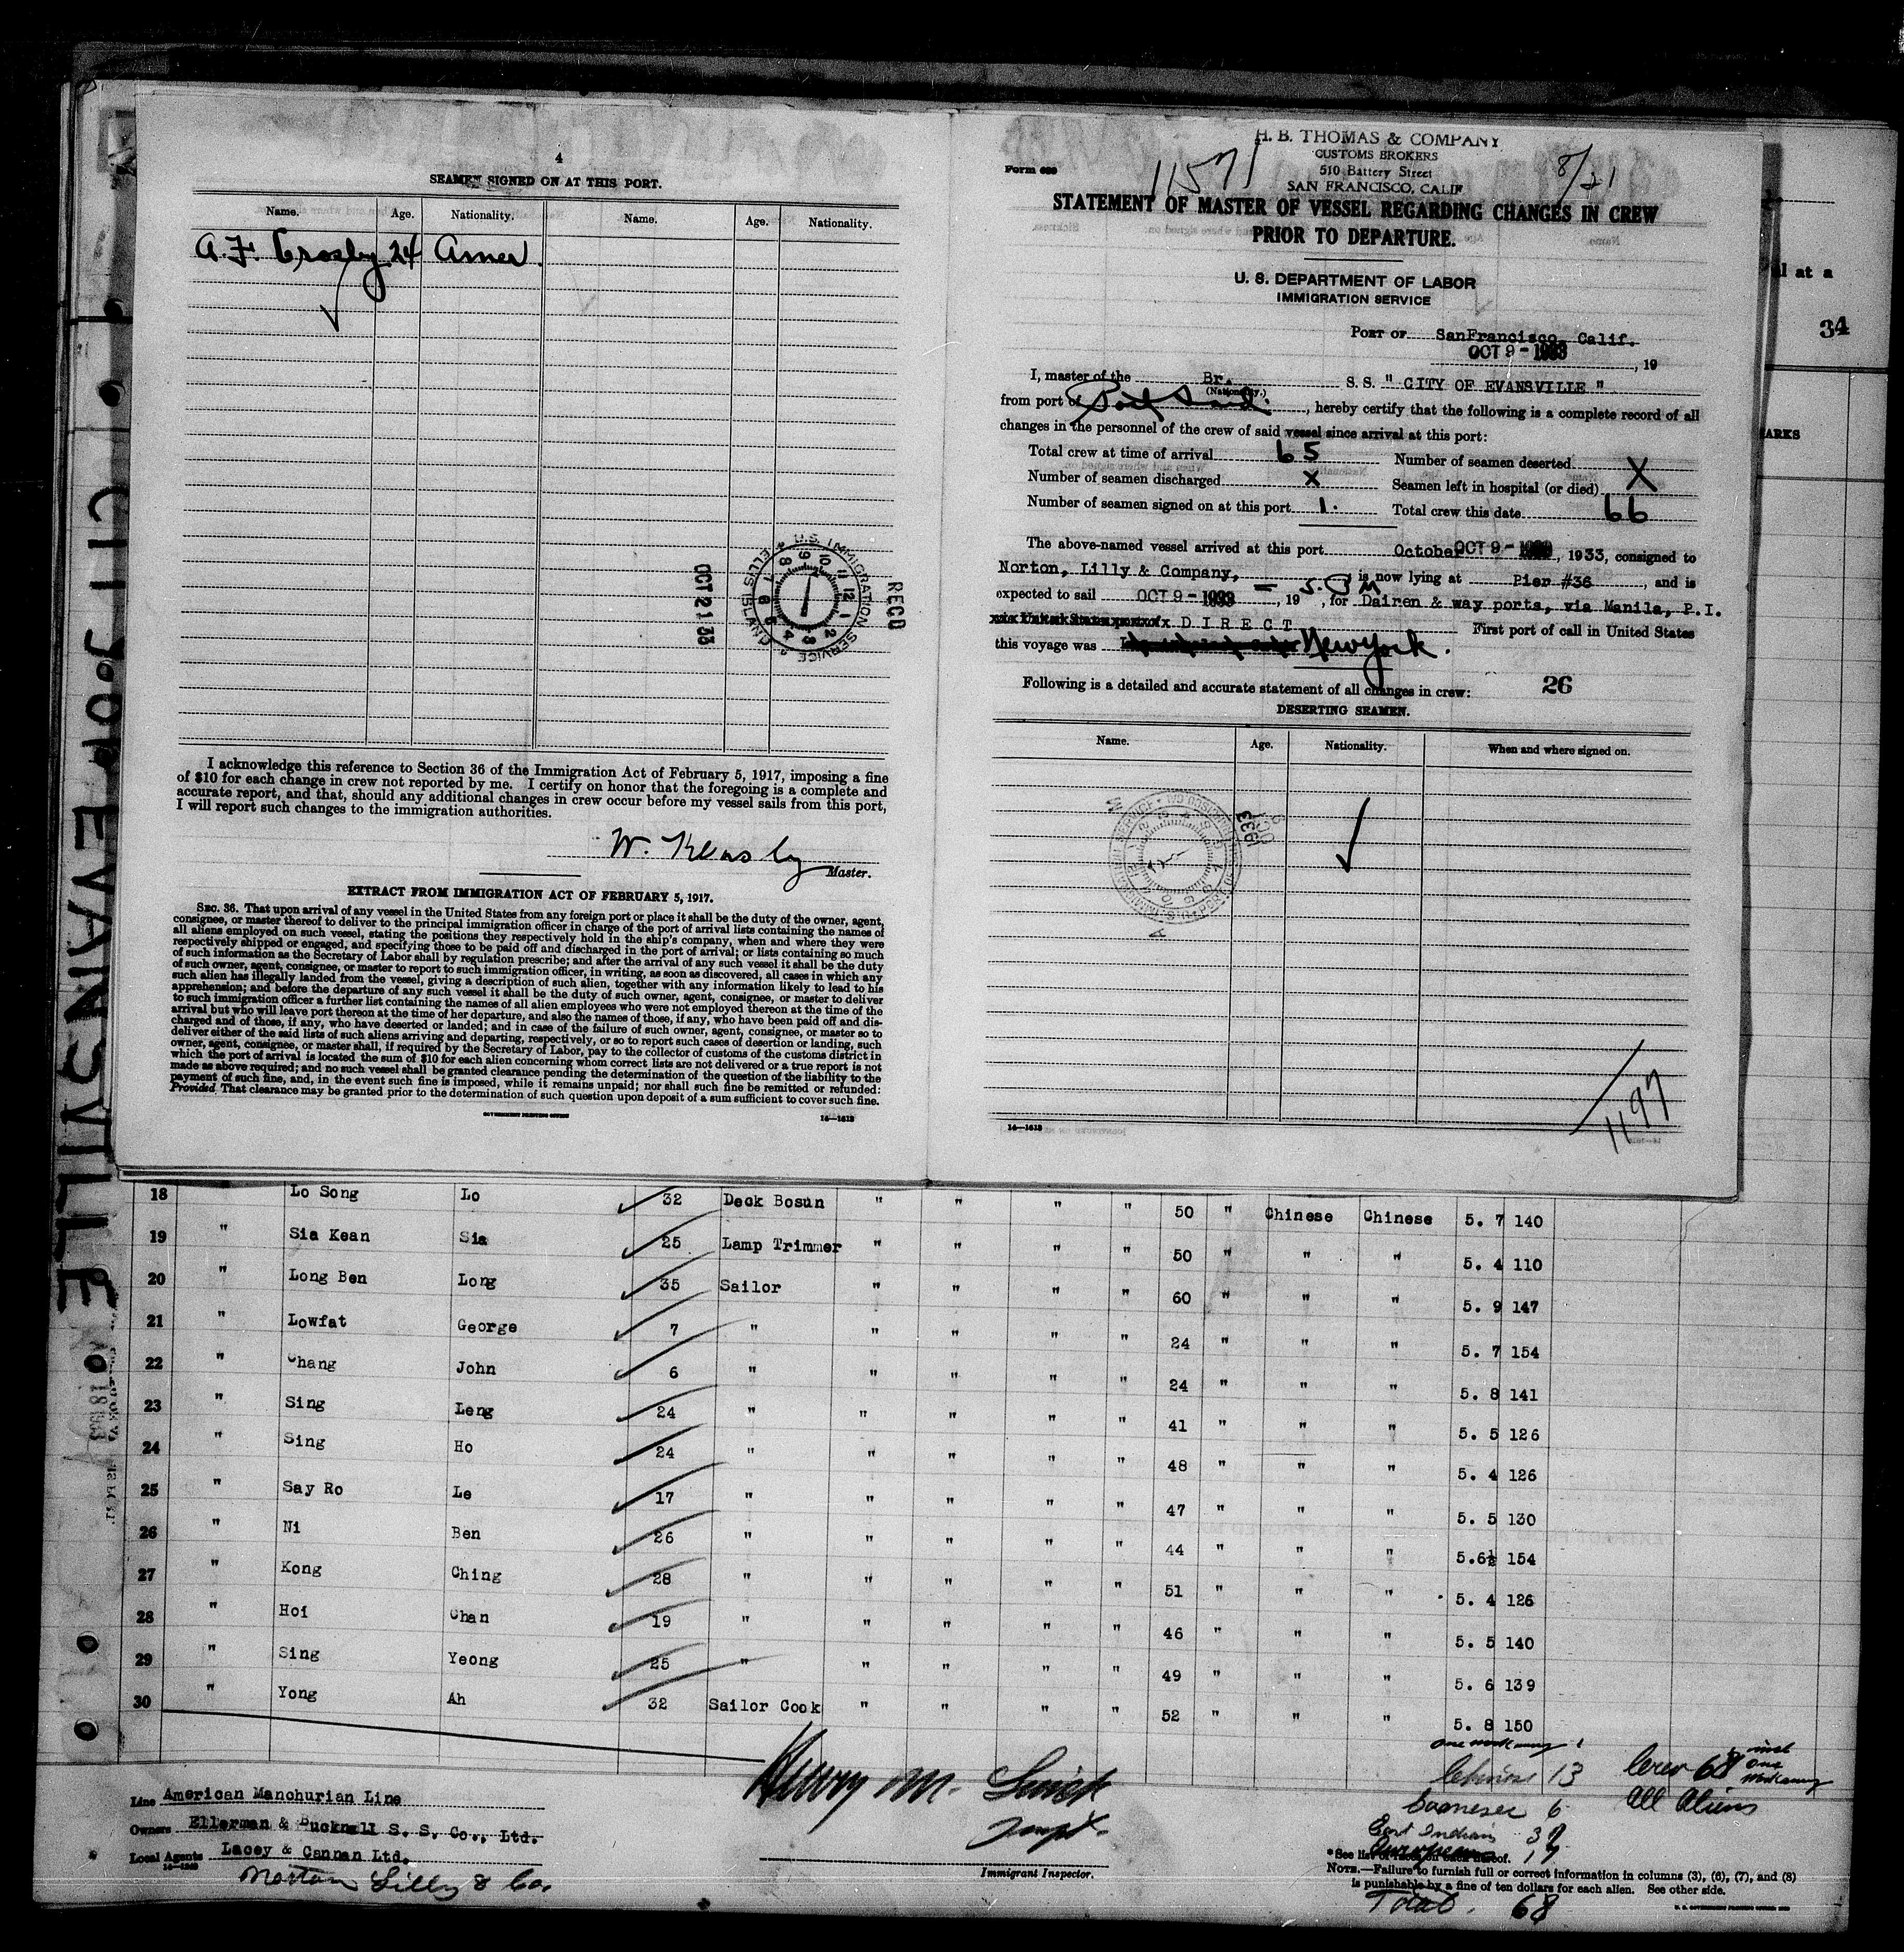 4
SEAMEN SIGNED ON AT THIS PORT.
Name. Age. Nationality. Name. Age. Nationality.
A. F. Crosby 24 Amer.
U.S. IMMIGRATION SERVICE ELLIS ISLAND
OCT 21 33
RECD
I acknowledge this reference to Section 36 of the Immigration Act of February 5, 1917, imposing a fine
of $10 for each change in crew not reported by me. I certify on honor that the foregoing is a complete and
accurate report, and that, should any additional changes in crew occur before my vessel sails from this port,
I will report such changes to the immigration authorities.
W. Keasly
Master.
EXTRACT FROM IMMIGRATION ACT OF FEBRUARY 5, 1917.
SEC. 36. That upon arrival of any vessel in the United States from any foreign port or place it shall be the duty of the owner, agent,
consignee, or master thereof to deliver to the principal immigration officer in charge of the port of arrival lists containing the names of
all aliens employed on such vessel, stating the positions they respectively hold in the ship's company, when and where they were
respectively shipped or engaged, and specifying those to be paid off and discharged in the port of arrival; or lists containing so much
of such information as the Secretary of Labor shall by regulation prescribe; and after the arrival of any such vessel it shall be the duty
of such owner, agent, consignee, or master to report to such immigration officer, in writing, as soon as discovered, all cases in which any
such alien has illegally landed from the vessel, giving a description of such alien, together with any information likely to lead to his
apprehension; and before the departure of any such vessel it shall be the duty of such owner, agent, consignee, or master to deliver
to such immigration officer a further list containing the names of all alien employees who were not employed thereon at the time of the
arrival but who will leave port thereon at the time of her departure, and also the names of those, if any, who have been paid off and dis-
charged and of those, if any, who have deserted or landed; and in case of the failure of such owner, agent, consignee, or master so to
deliver either of the said lists of such aliens arriving and departing, respectively, or so to report such cases of desertion or landing, such
owner, agent, consignee, or master shall, if required by the Secretary of Labor, pay to the collector of customs of the customs district in
which the port of arrival is located the sum of $10 for each alien concerning whom correct lists are not delivered or a true report is not
made as above required; and no such vessel shall be granted clearance pending the determination of the question of the liability to the
payment of such fine, and, in the event such fine is imposed, while it remains unpaid; nor shall such fine be remitted or refunded:
Provided, That clearance may be granted prior to the determination of such question upon deposit of a sum sufficient to cover such fine.
GOVERNMENT PRINTING OFFICE 14—1613
H. B. THOMAS & COMPANY
CUSTOMS BROKERS
510 Battery Street
SAN FRANCISCO, CALIF
Form 689 11571 8/21
STATEMENT OF MASTER OF VESSEL REGARDING CHANGES IN CREW
PRIOR TO DEPARTURE.
U. S. DEPARTMENT OF LABOR
IMMIGRATION SERVICE
PORT OF SanFrancisco, Calif.
OCT 9 - 1933, 19
I, master of the Br. S.S. " CITY OF EVANSVILLE "
(Nationality.)
from port Port Said, hereby certify that the following is a complete record of all
changes in the personnel of the crew of said vessel since arrival at this port:
Total crew at time of arrival 65 Number of seamen deserted X
Number of seamen discharged x Seamen left in hospital (or died) X
Number of seamen signed on at this port 1. Total crew this date 66
The above-named vessel arrived at this port October OCT 9 - 1933, 1933, consigned to
Norton, Lilly & Company, is now lying at Pier #36, and is
expected to sail OCT 9 - 1933 — 5. PM, 19 , for Dairen & way ports, via Manila, P.I.
DIRECT First port of call in United States
this voyage was New York.
Following is a detailed and accurate statement of all changes in crew: 26
DESERTING SEAMEN.
Name. Age. Nationality. When and where signed on.
1933
14—1613
1197
al at a
34
ARKS
CITY OF EVANSVILLE
18 1933
18 Lo Song Lo 32 Deck Bosun " " " " 50 " Chinese Chinese 5. 7 140
19 " Sia Kean Sia 25 Lamp Trimmer " " " " 50 " " " 5. 4 110
20 " Long Ben Long 35 Sailor " " " " 60 " " " 5. 9 147
21 " Lowfat George 7 " " " " " 24 " " " 5. 7 154
22 " Chang John 6 " " " " " 24 " " " 5. 8 141
23 " Sing Leng 24 " " " " " 41 " " " 5. 5 126
24 " Sing Ho 24 " " " " " 48 " " " 5. 4 126
25 " Say Ro Le 17 " " " " " 47 " " " 5. 5 130
26 " Ni Ben 26 " " " " " 44 " " " 5.6½ 154
27 " Kong Ching 28 " " " " " 51 " " " 5. 4 126
28 " Hoi Chan 19 " " " " " 46 " " " 5. 5 140
29 " Sing Yeong 25 " " " " " 49 " " " 5. 6 139
30 " Yong Ah 32 Sailor Cook " " " " 52 " " " 5. 8 150
one workaway 1
Chinese 13 Crew 68 incl one workaway
Goanese 6 All Aliens
East Indians 39
Europeans 17
Line American Manchurian Line
Owners Ellerman & Bucknall S. S. Co., Ltd.
Local Agents Lacey & Cannan Ltd.
14—1240
Norton Lilly & Co.
Henry M.
Inspt.
Immigrant Inspector.
*See list of races on back hereof.
NOTE.—Failure to furnish full or correct information in columns (3), (6), (7), and (8)
is punishable by a fine of ten dollars for each alien. See other side.
Total. 68